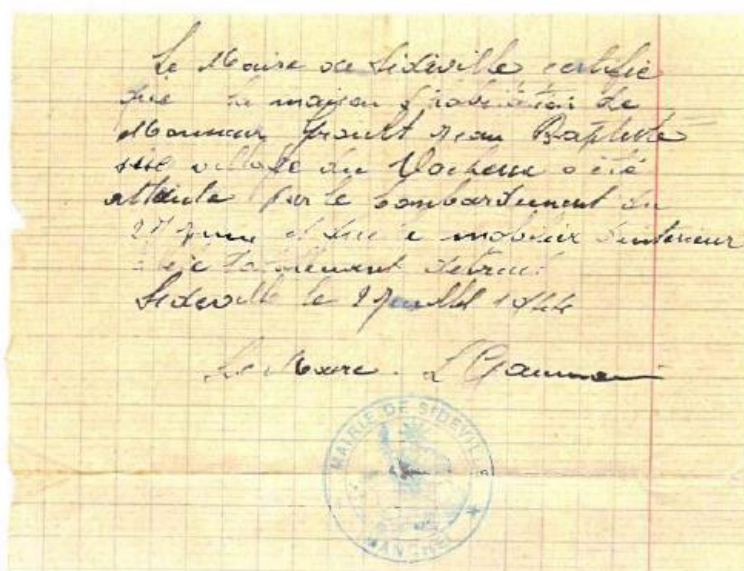 Le Maire de Sideville certifie
que la maison d'habitation de
Monsieur Groult Jean Baptiste
sise village du a été
atteinte par le bombardement du
juin et que le mobilier d'interieur
a été totalement detruit
Sideville le 2 juillet 1944
Le Maire
MAIRIE DE SIDEVILLE
MANCHE